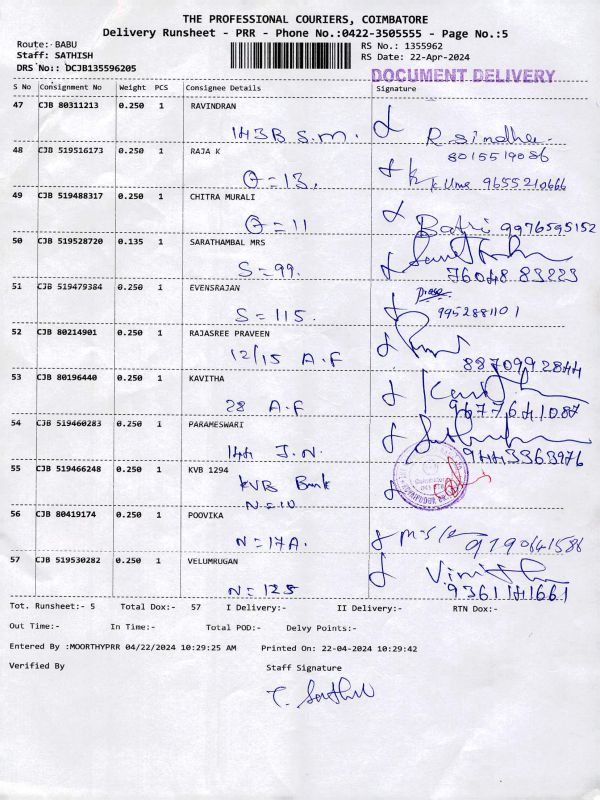 THE PROFESSIONAL COURIERS, COIMBATORE
Delivery Runsheet - PRR - Phone No.:0422-3505555 - Page No.:5
Route: BABU
RS No.: 1355962
Staff: SATHISH
RS Date: 22-Apr-2024
DRS No:: DCJB135596205
DOCUMENT DELIVERY
S No Consignment No Weight PCS Consignee Details Signature
47 CJB 80311213 0.250 1 RAVINDRAN
143B S.M. R.sindhu
8015519086
48 CJB 519516173 0.250 1 RAJA K
O = 13. K.Uma 9655210666
49 CJB 519488317 0.250 1 CHITRA MURALI
O = 11 9976595152
50 CJB 519528720 0.135 1 SARATHAMBAL MRS
S = 99. 76048 83223
51 CJB 519479384 0.250 1 EVENSRAJAN
S = 115. 9952881101
52 CJB 80214901 0.250 1 RAJASREE PRAVEEN
12/15 A.F 8870992844
53 CJB 80196440 0.250 1 KAVITHA
28 A.F 9677641087
54 CJB 519460283 0.250 1 PARAMESWARI
144 J.N. 9443363976
55 CJB 519466248 0.250 1 KVB 1294
KVB Bank
N = 10
56 CJB 80419174 0.250 1 POOVIKA
N = 17A. 9190641586
57 CJB 519530282 0.250 1 VELUMRUGAN
N = 125 9361141661
Tot. Runsheet:- 5 Total Dox:- 57 I Delivery:- II Delivery:- RTN Dox:-
Out Time:- In Time:- Total POD:- Delvy Points:-
Entered By :MOORTHYPRR 04/22/2024 10:29:25 AM Printed On: 22-04-2024 10:29:42
Verified By Staff Signature